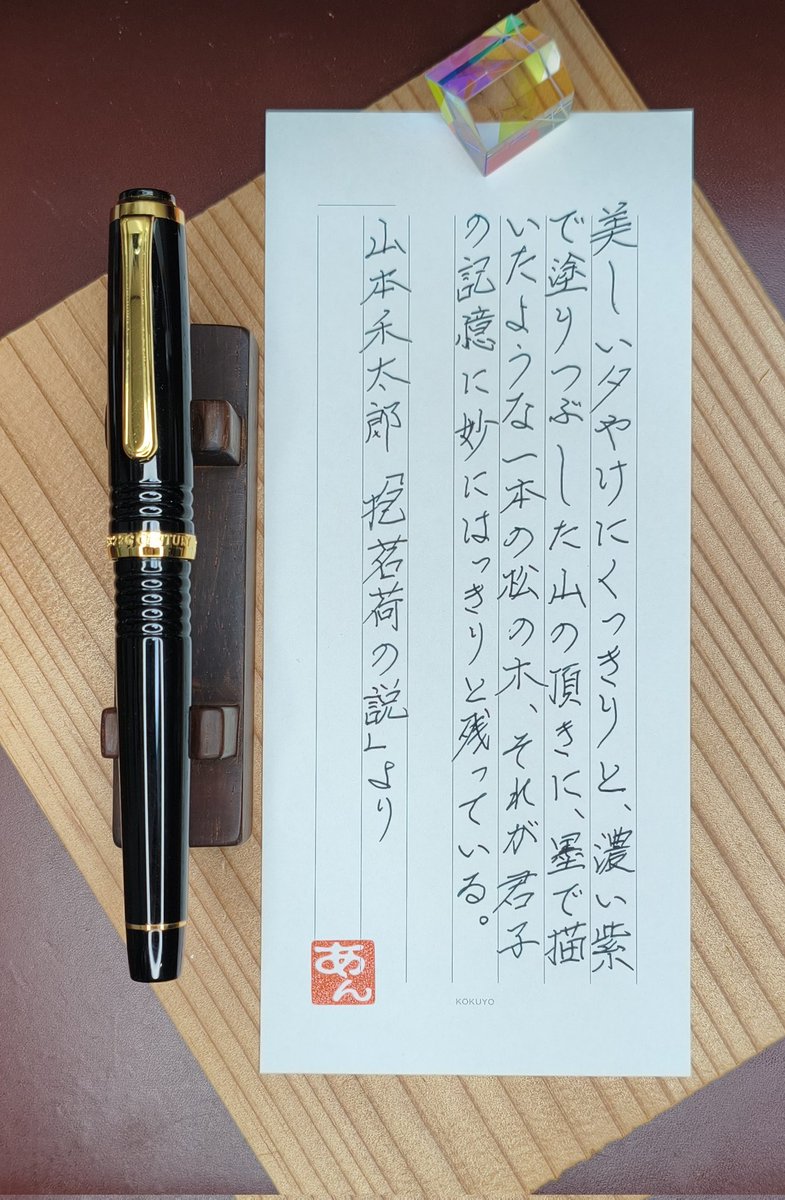 美しい夕やけにくっきりと、濃い紫
で塗りつぶした山の頂きに、墨で描
いたような一本の松の木、それが君子
の記憶に妙にはっきりと残っている。
山本禾太郎「抱茗荷の説」より
あん
KOKUYO
CENTURY